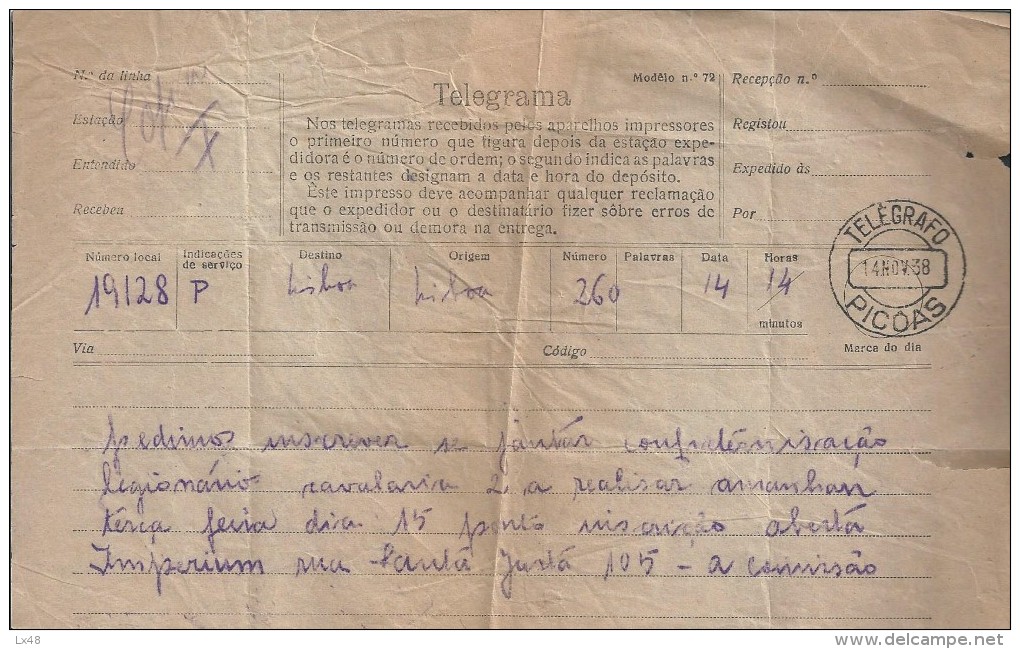 N.º da linha
Estação
Entendido
Recebeu
Modêlo n.º 72
Telegrama
Nos telegramas recebidos pelos aparelhos impressores
o primeiro número que figura depois da estação expe-
didora é o número de ordem; o segundo indica as palavras
e os restantes designam a data e hora do depósito.
Êste impresso deve acompanhar qualquer reclamação
que o expedidor ou o destinatário fizer sôbre erros de
transmissão ou demora na entrega.
Recepção n.º
Registou
Expedido às
Por
TELÉGRAFO
14 NOV. 38
PICOAS
Marca do dia
Número local
19128
Indicações
de serviço
P
Destino
Lisboa
Origem
Lisboa
Número
260
Palavras
Data
14
Horas
14
minutos
Via
Código
pedimos inscrever se jantar confraternisação
legionário cavalaria 2 a realisar amanhan
terça feria dia 15 ponto inscrição aberta
Imperium rua Santa Justa 105 - a comissão
Lx48
www.delcampe.net